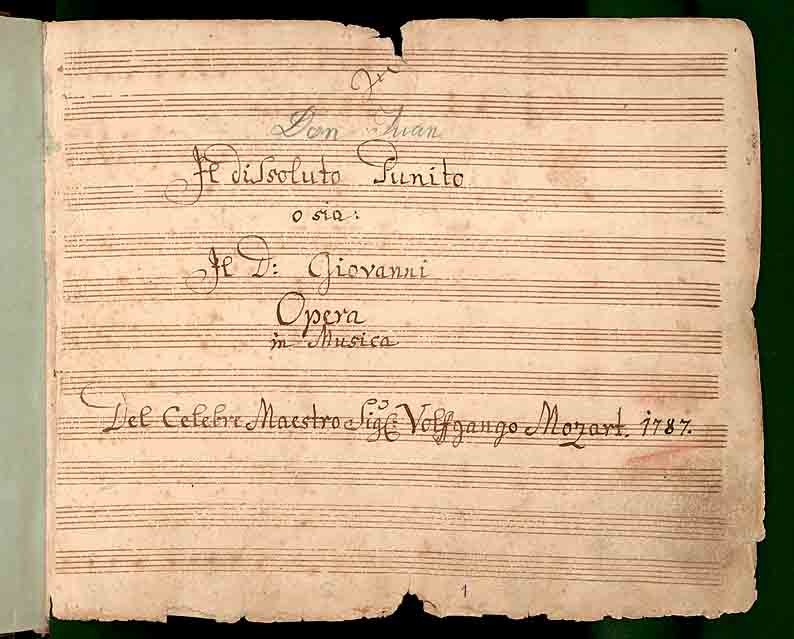 Don Juan
Il dissoluto Punito
o sia:
Il D: Giovanni
Opera
in Musica
Del Celebre Maestro Sigᵉ: Volfgango Mozart. 1787.
1